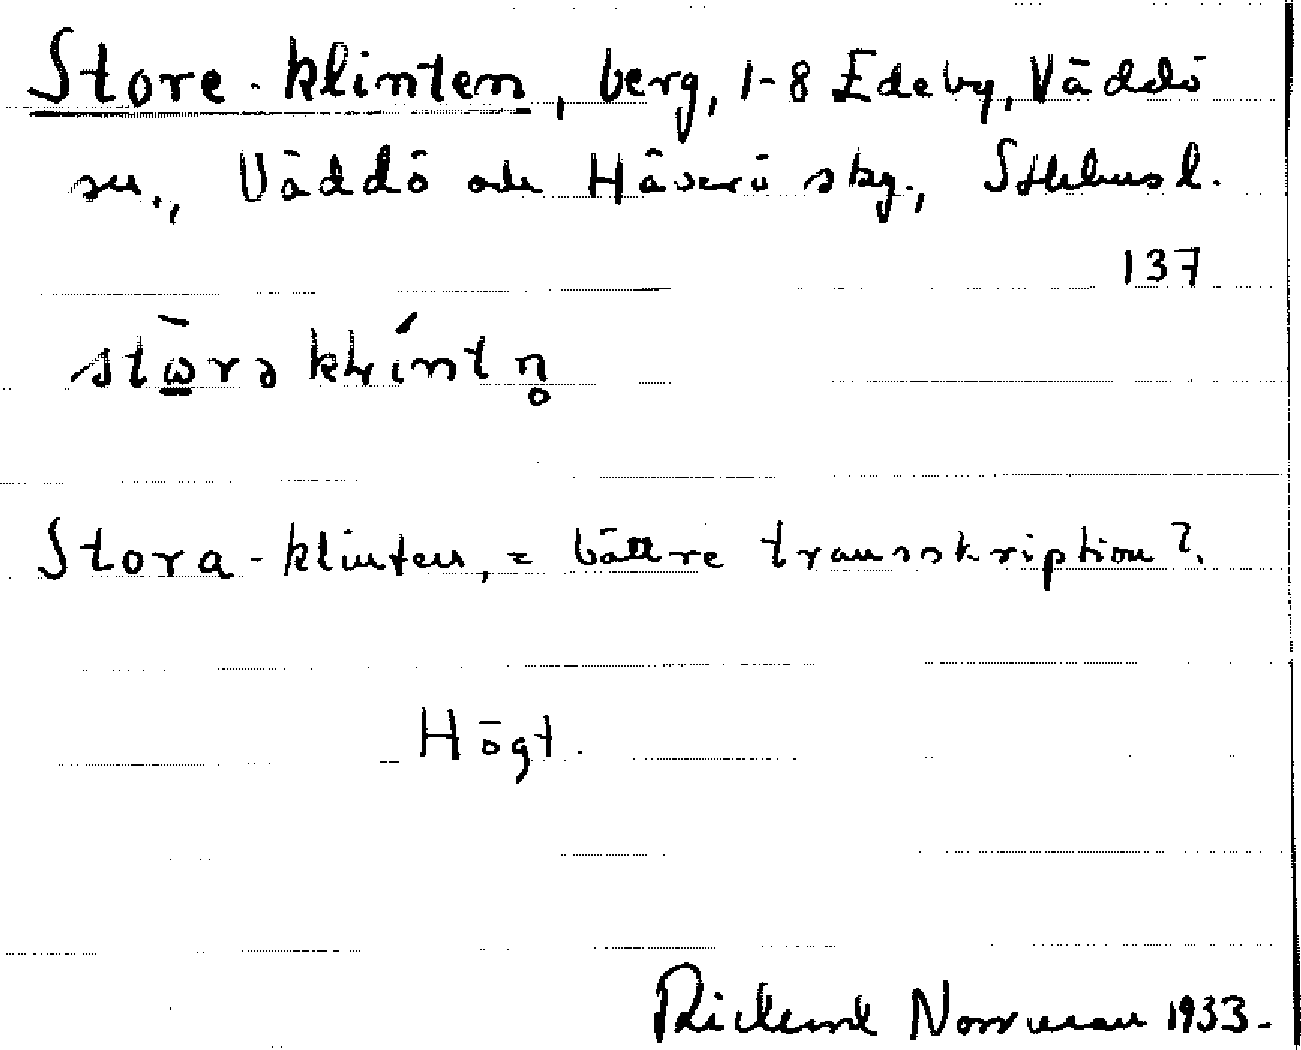 Store-klinten, berg, 1-8 Edeby, Väddö
sn., Väddö och Häverö skg., Sthlms l.
137
stὼ̲rə klíntn̥
Stora-klinten, = bättre transskription?
Högt.
Rickard Norrman 1933.